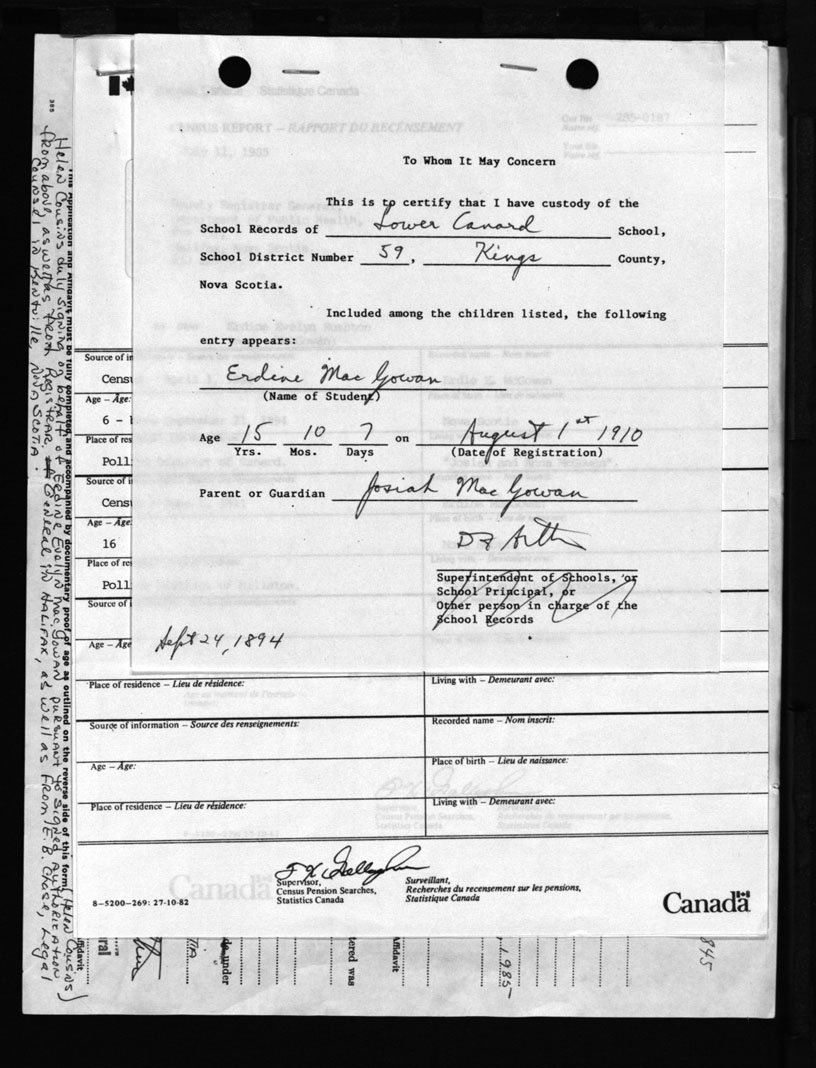 To Whom It May Concern
This is to certify that I have custody of the
School Records of Lower Canard School,
School District Number 59, Kings County,
Nova Scotia.
Included among the children listed, the following
entry appears:
Erdine MacGowan
(Name of Student)
Age 15 10 7 on August 1st 1910
Yrs. Mos. Days (Date of Registration)
Parent or Guardian Josiah MacGowan
Superintendent of Schools, or
School Principal, or
Other person in charge of the
School Records
Sept 24, 1894
CENSUS REPORT – RAPPORT DU RECENSEMENT
Source of in
Cens
Age – Âge:
6 –
Place of res
Poll
Source of i
Cens
Age – Âge
16
Place of re
Poll
Source of
Age – Âge
Place of residence – Lieu de résidence:
Living with – Demeurant avec:
Source of information – Source des renseignements:
Recorded name – Nom inscrit:
Age – Âge:
Place of birth – Lieu de naissance:
Place of residence – Lieu de résidence:
Living with – Demeurant avec:
Supervisor,
Census Pension Searches,
Statistics Canada
Surveillant,
Recherches du recensement sur les pensions,
Statistique Canada
8-5200-269: 27-10-82
Canada
385
This Application and Affidavit must be fully completed and accompanied by documentary proof of age as outlined on the reverse side of this form.
(Helen Cousins)
Helen Cousins duly signing on behalf of Erdine Evelyn MacGowan pursuant to signed Authorization
from above, as well as from Registrar General in Halifax, as well as from E.B. Chase, Legal
Counsel in Kentville, Nova Scotia.
Affidavit
under
tered was
Affidavit
1985
845